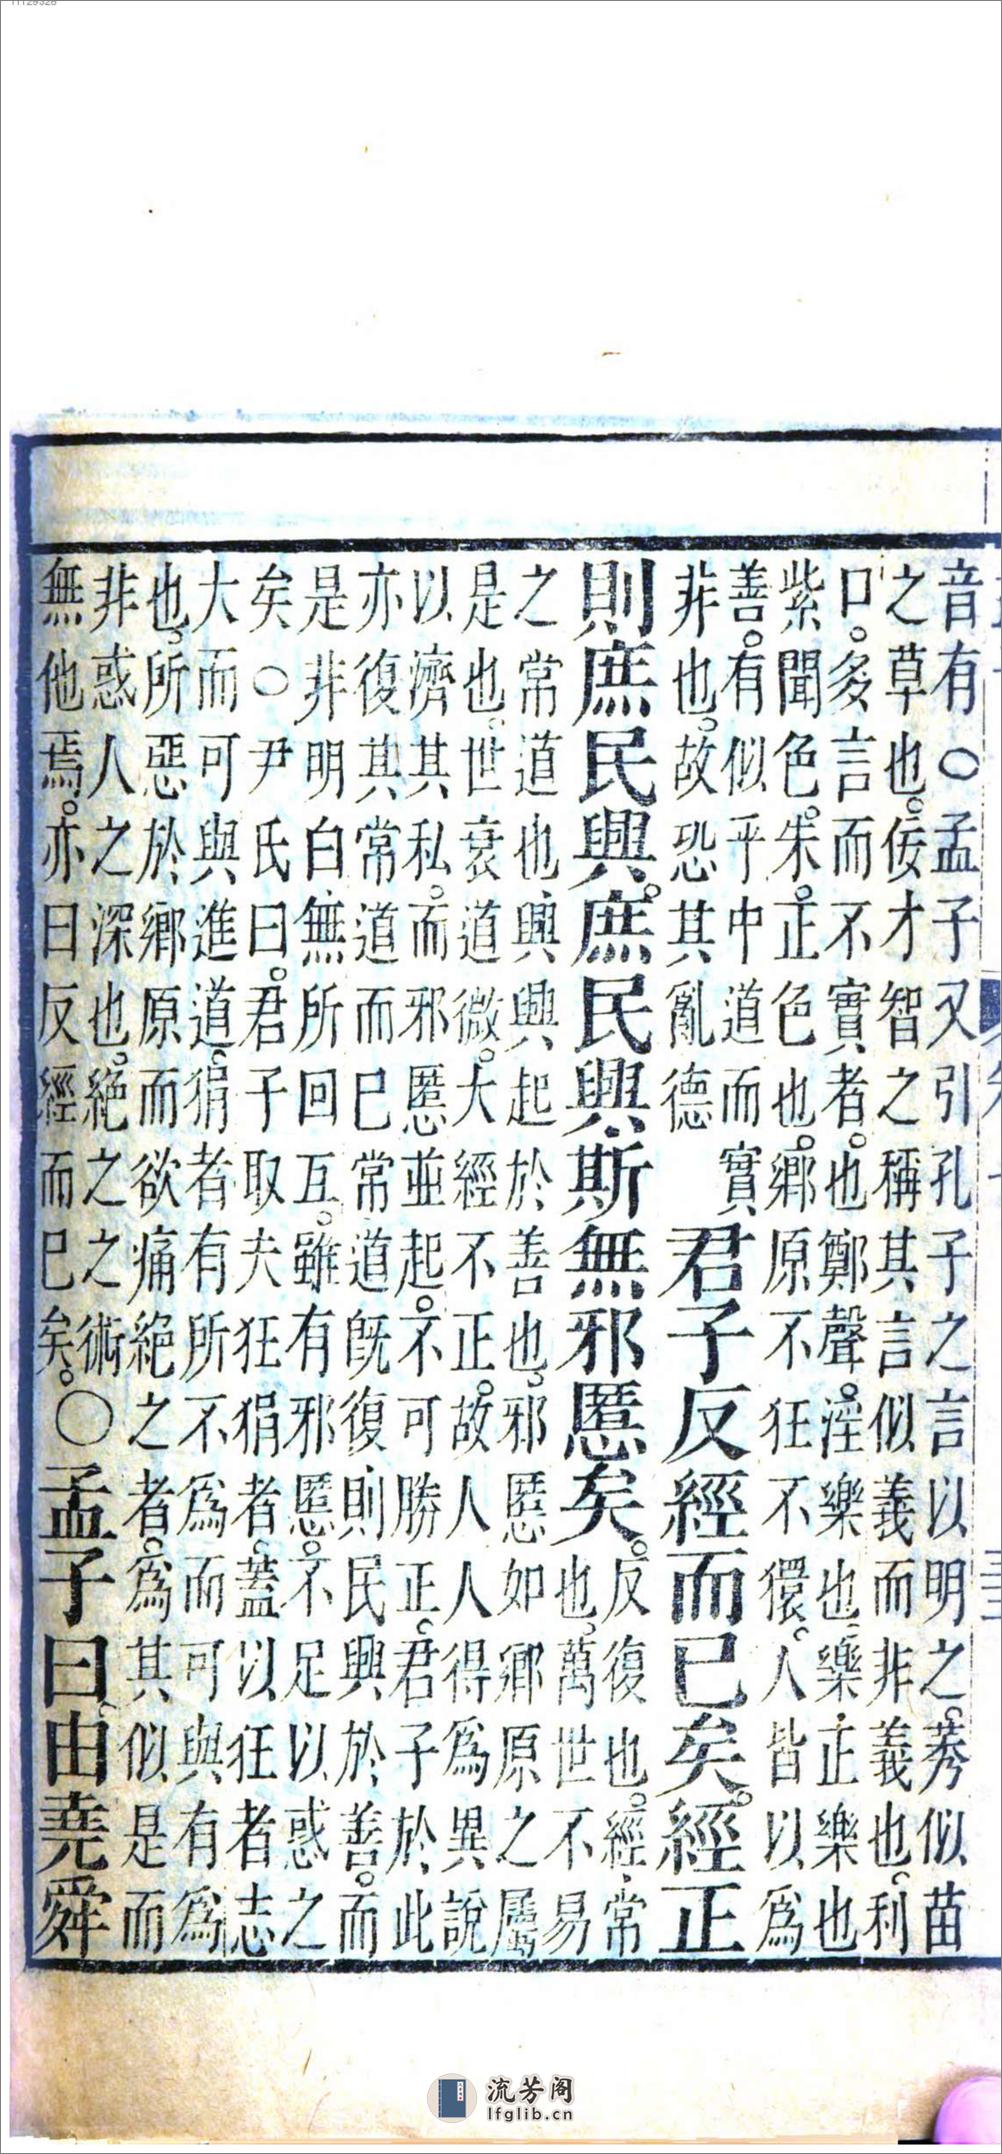 音有○孟子又引孔子之言以明之。莠似苗
之草也。佞才智之稱其言似義而非義也。利
口。多言而不實者。也鄭聲。淫樂也樂正樂也
紫聞色。朱。正色也。鄉原不狂不獧。人皆以爲
善。有似乎中道而實
非也。故恐其亂德
君子反經而已矣。經正
則庶民興。庶民興斯無邪慝矣。
反復也。經。常
也。萬世不易
之常道也興興起於善也。邪慝如鄉原之屬
是也。世衰道微。大經不正。故人人得爲異說
以濟其私。而邪慝並起。不可勝正。君子於此
亦復其常道而已常道既復則民興於善。而
是非明白無所回互。雖有邪慝。不足以惑之
矣○尹氏曰。君子取夫狂狷者。蓋以狂者志
大而可與進道。狷者有所不爲而可與有爲
也。所惡於鄉原而欲痛絕之者。爲其似是而
非惑人之深也。絕之之術
無他焉。亦曰反經而已矣。○
孟子曰。由堯舜
流芳阁
lfglib.cn